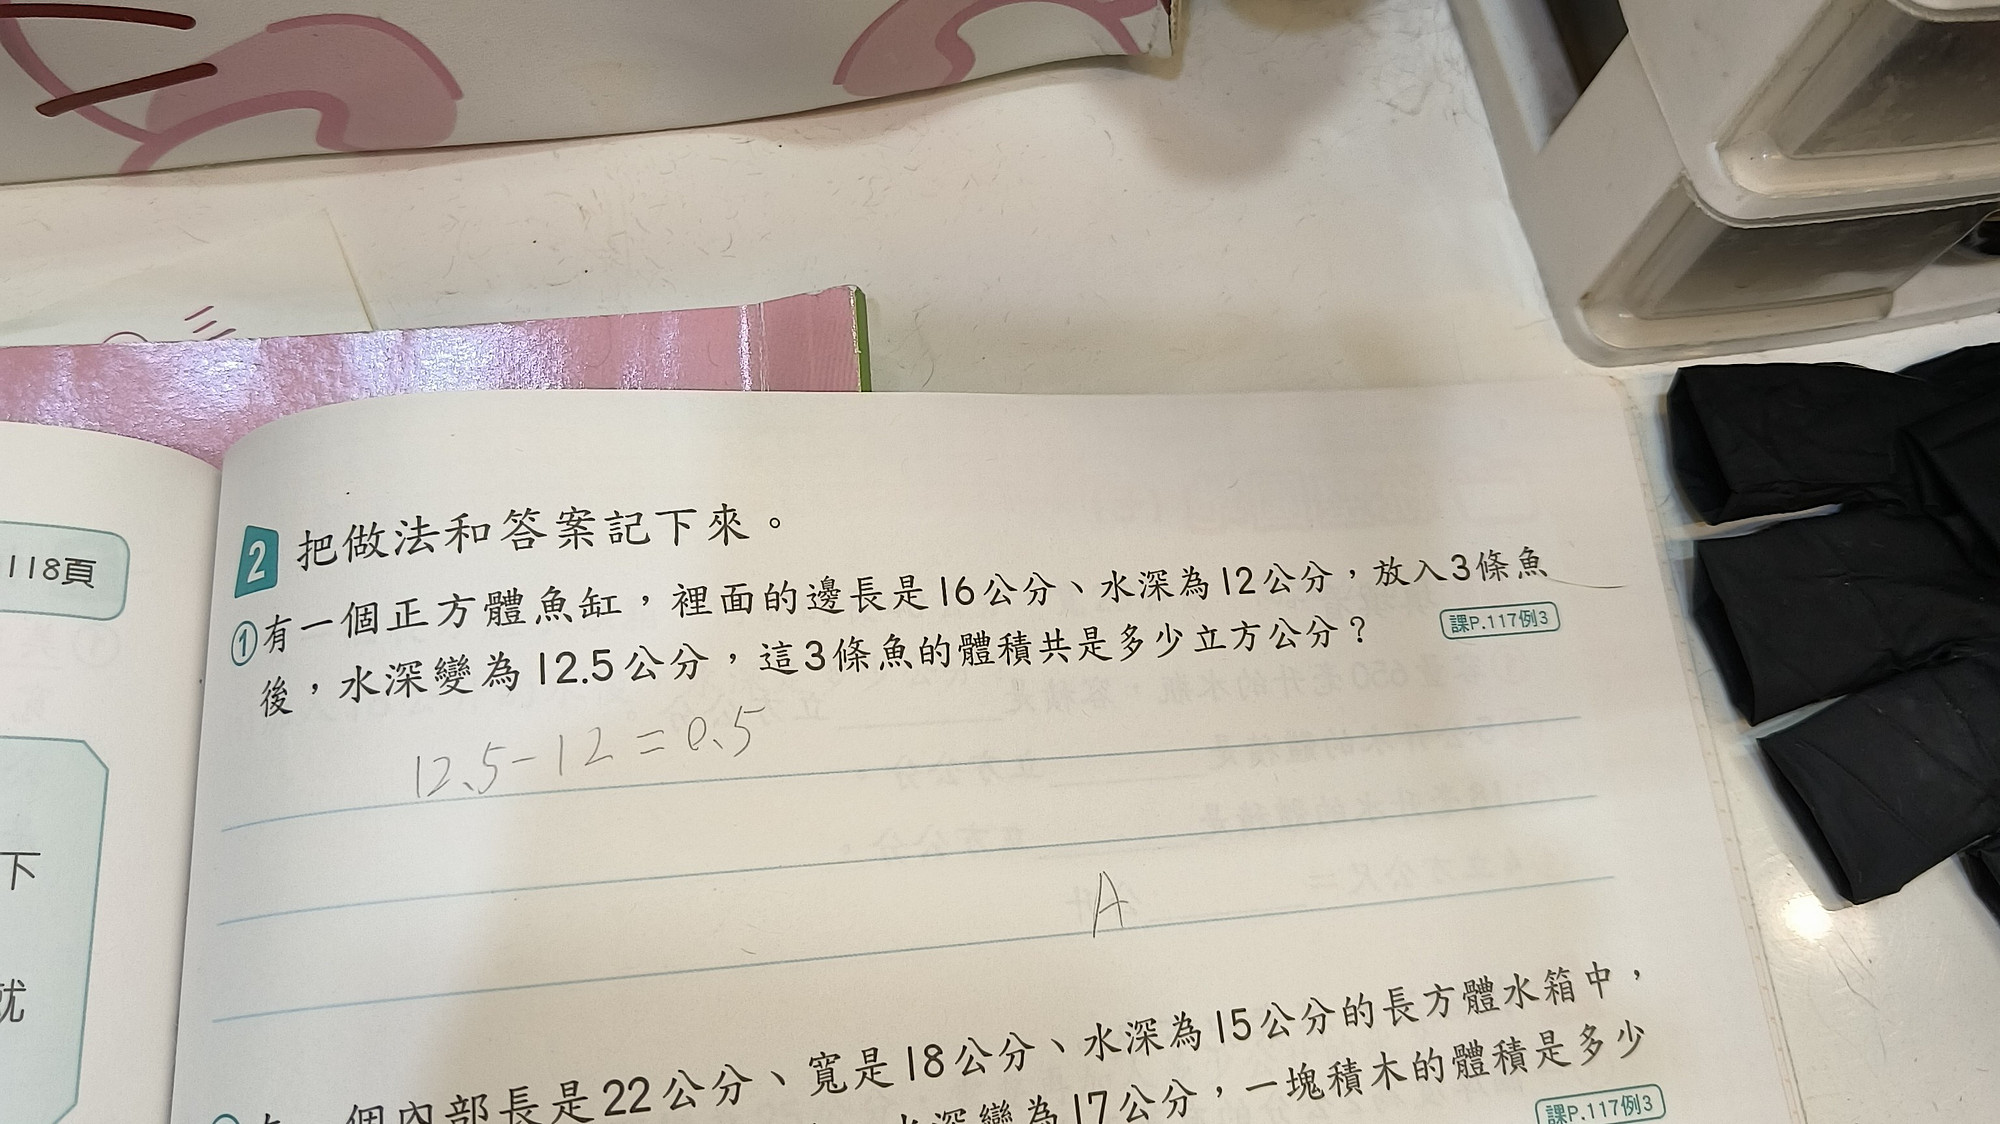 118頁
下
就
2 把做法和答案記下來。
①有一個正方體魚缸，裡面的邊長是16公分、水深為12公分，放入3條魚
後，水深變為12.5公分，這3條魚的體積共是多少立方公分？
課P.117例3
12.5-12=0.5
A
個內部長是22公分、寬是18公分、水深為15公分的長方體水箱中，
水深變為17公分，一塊積木的體積是多少
課P.117例3